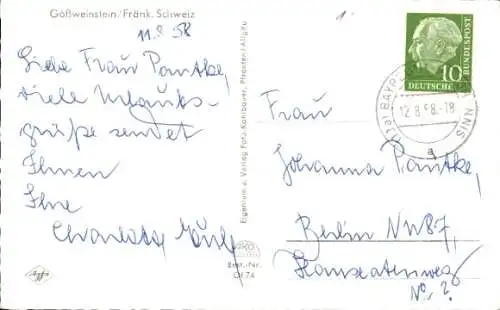 Gößweinstein/Fränk. Schweiz
11.8.58
Liebe Frau Pantke,
viele Urlaubs-
grüße sendet
Ihnen
Ihre
Charlotte
Eigentum u. Verlag Foto-Kohlbauer, Pfronten/Allgäu
Best.-Nr.
Agfa
10
DEUTSCHE BUNDESPOST
12.8.58.-18
a
Frau
Johanna Pantke,
Berlin NW87,
Hansatenweg
No. ?